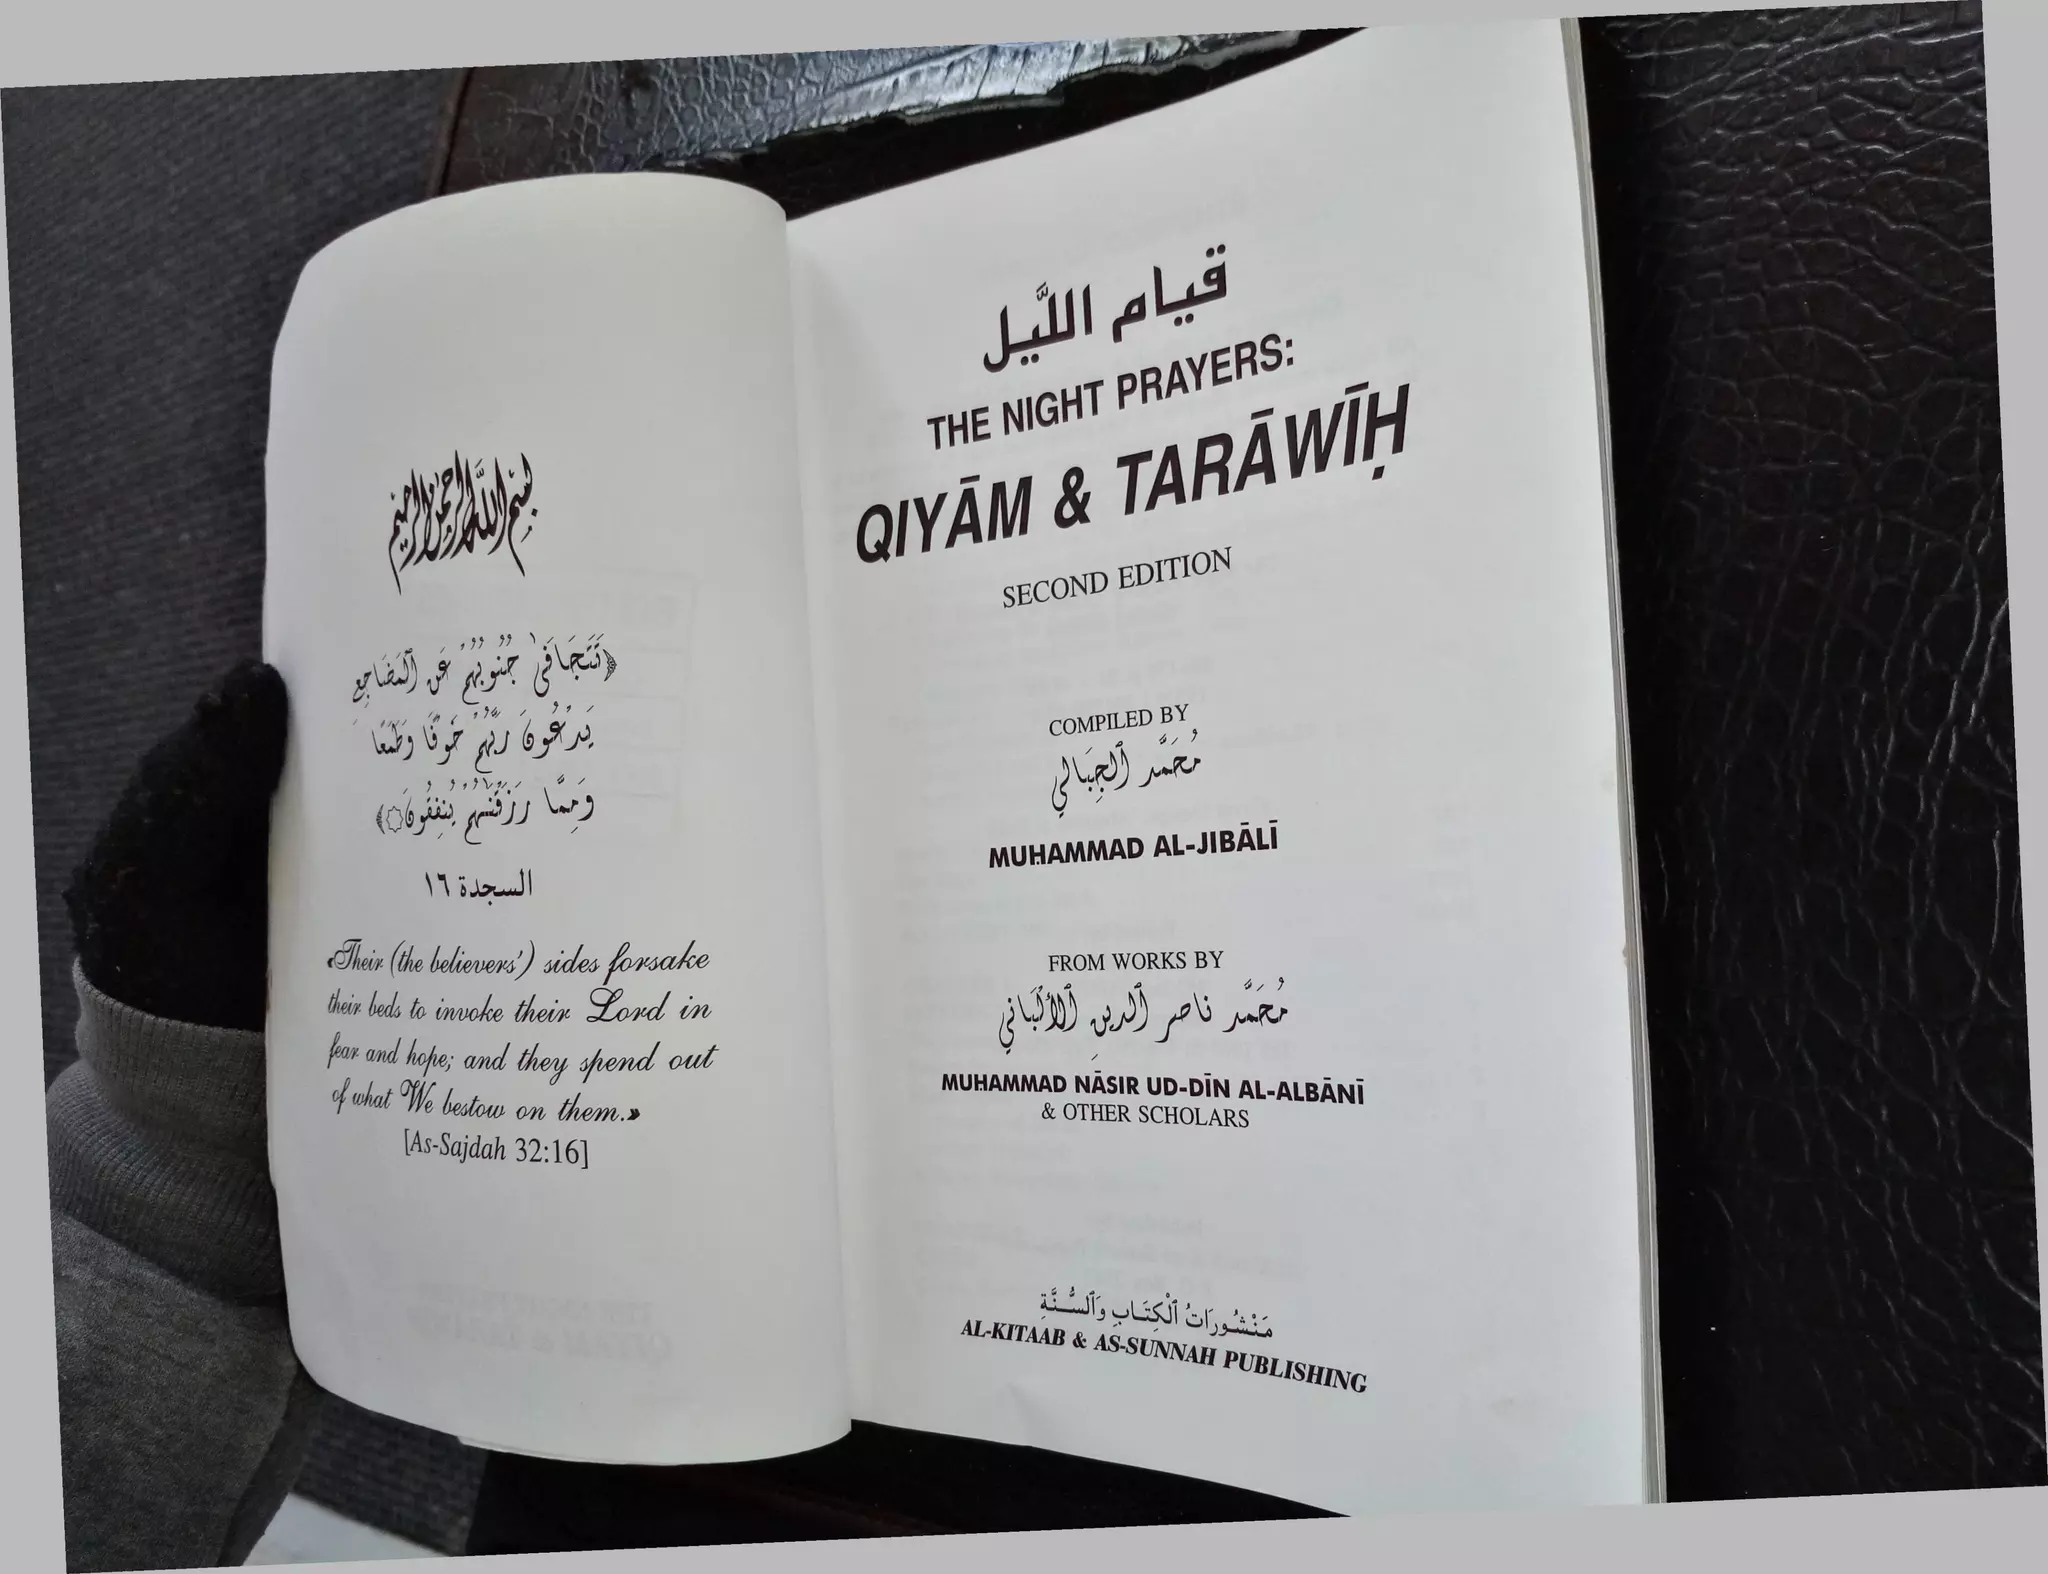 بسم الله الرحمن الرحيم
﴿تَتَجَافَىٰ جُنُوبُهُمْ عَنِ ٱلْمَضَاجِعِ
يَدْعُونَ رَبَّهُمْ خَوْفًا وَطَمَعًا
وَمِمَّا رَزَقْنَـٰهُمْ يُنفِقُونَ ۞﴾
السجدة ١٦
«Their (the believers') sides forsake
their beds to invoke their Lord in
fear and hope; and they spend out
of what We bestow on them.»
[As-Sajdah 32:16]
قيام اللَّيل
THE NIGHT PRAYERS:
QIYĀM & TARĀWĪḤ
SECOND EDITION
COMPILED BY
مُحَمَّد ٱلْجِبَالي
MUḤAMMAD AL-JIBĀLĪ
FROM WORKS BY
مُحَمَّد ناصر ٱلدينِ ٱلأَلْبَاني
MUḤAMMAD NĀSIR UD-DĪN AL-ALBĀNĪ
& OTHER SCHOLARS
مَنْشُورَاتُ ٱلْكِتَابِ وَٱلسُّنَّةِ
AL-KITAAB & AS-SUNNAH PUBLISHING